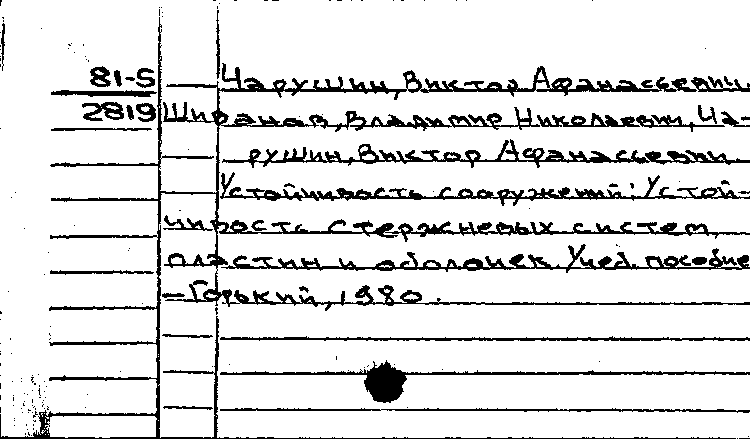 81-5 Чарушин, Виктор Афанасьевич.
2819 Шиванов, Владимир Николаевич, Ча-
рушин, Виктор Афанасьевич
Устойчивость сооружений: Устой-
чивость стержневых систем,
пластин и оболочек. Учеб. пособие
—Горький, 1980.